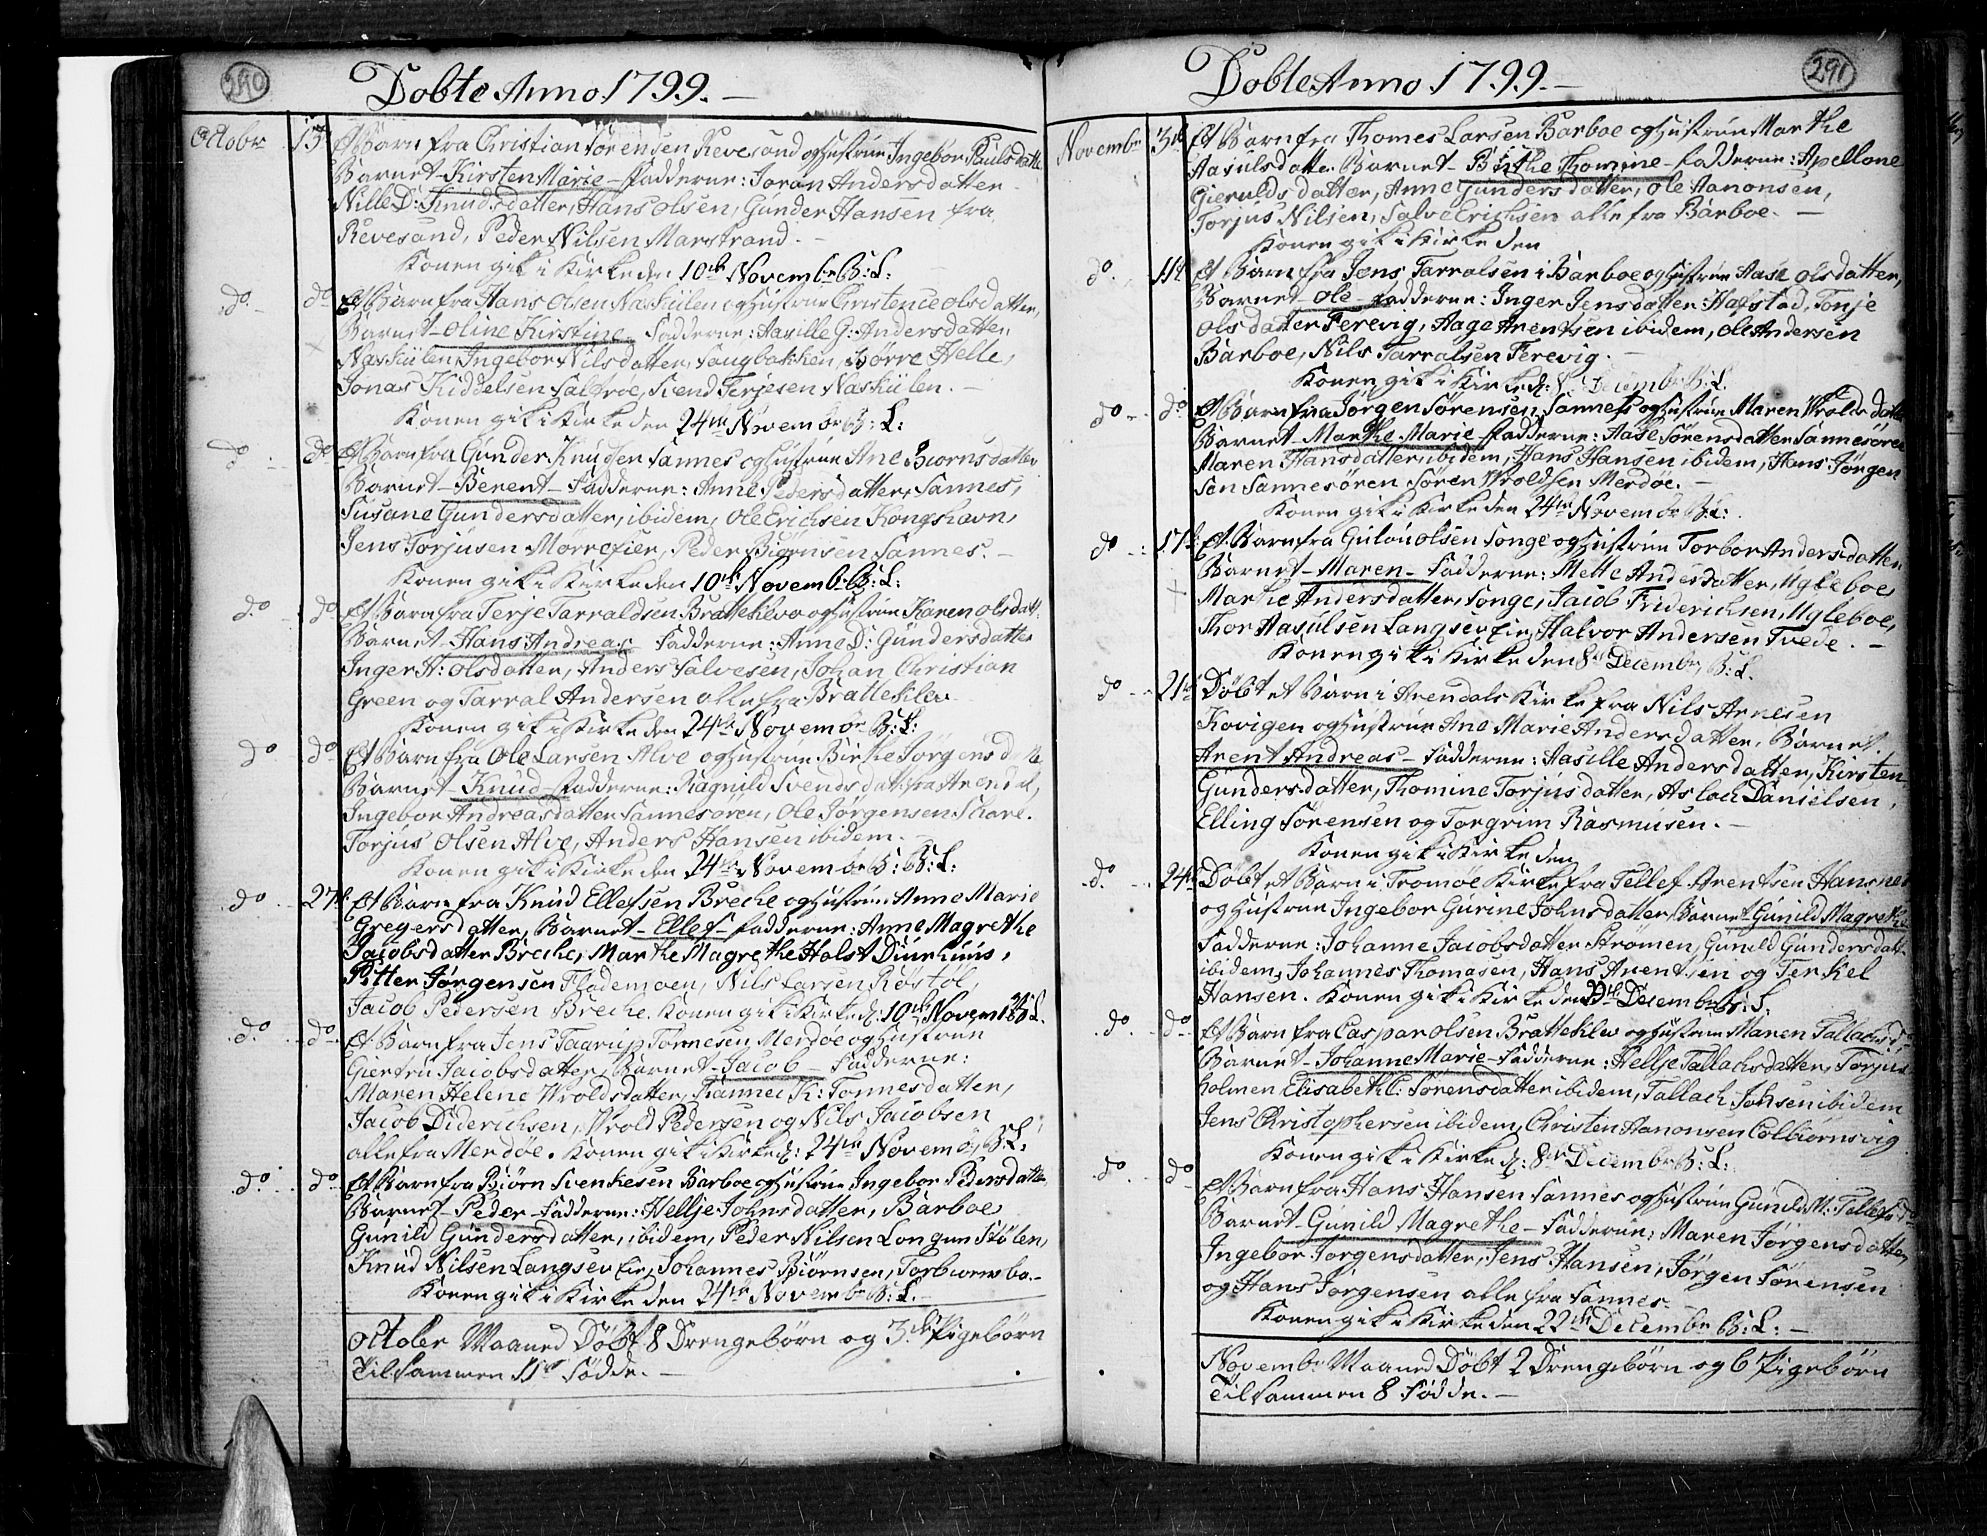 290
Dobte Anno 1799.
Octobr 13 Et Barn fra Christian Sörensen Revesand og Hustrue Ingebor Pauls datter
Barnet Kirsten Marie Fadderne: Joran Andersdatter
Nille D: Knudsdatter, Hans Olsen, Gunder Hansen fra
Revesand, Peder Nilsen Marstrand.
Konen gik i Kirke den 10de Novembr B: L:
do do Et Barn fra Hans Olsen Naskiilen og Hustrue Christence Olsdatter,
Barnet Oline Kirstine Fadderne: Aasille G: Andersdatter
Naskiilen, Ingebor Nilsdatter, Saugbakken, Helle,
Jonas Kiddelsen Salteroe, Svend Terjesen Naskiilen.
Konen gik i Kirke den 24de Novembr B: L:
do do Et Barn fra Gunder Knudsen Sannes og Hustrue Ane Biornsdatter
Barnet Berent Fadderne: Anne Pedersdatter, Sannes,
Susane Gundersdatter, ibidem, Ole Erichsen Kongshavn,
Jens Torjusen Mörrefier, Peder Biörnsen Sannes.
Konen gik i Kirke den 10de Novembr B: L:
do do Et Barn fra Terje Tarraldsen Bratteklev og Hustrue Karen Olsdatt:
Barnet Hans Andreas Fadderne: Anne D: Gundersdatter
Inger H: Olsdatter, Anders Salvesen, Johan Christian
Green og Tarral Andersen alle fra Bratteklev
Konen gik i Kirke den 24de Novembr B: L:
do do Et Barn fra Ole Larsen Alve og Hustrue Birthe Jörgensdatter
Barnet Knud Fadderne: Ragnild Svendsdatt: fra Arendal,
Ingebor Andreasdatter Sannesören, Ole Jörgensen Skare.
Torjus Olsen Alve, Anders Hansen ibidem.
Konen gik i Kirke den 24de Novembr B: L:
do 27de Et Barn fra Knud Ellefsen Breche og Hustrue Anne Marie
Gregersdatter, Barnet Ellef Fadderne: Anne Magrethe
Jacobsdatter Breche, Marthe Magrethe Holst Diurhuus,
Pitter Jörgensen Flademoen, Nils Larsen Röstöl,
Jacob Pedersen Breche. Konen gik i Kirke d: 10de Novembr B: L.
do do Et Barn fra Jens Taarup Tönnesen Merdöe og Hustrue
Giertru Jacobsdatter, Barnet Jacob Fadderne:
Maren Helene Wroldsdatter, K: Tönnesdatter,
Jacob Diderichsen, Wrold Pedersen og Nils Jacobsen
alle fra Merdöe. Konen gik i Kirke d: 24de Novembr B: L:
do do Et Barn fra Biörn Svenkesen Barboe og Hustrue Ingebor Pedersdatter
Barnet Peder Fadderne: Hellje Johnsdatter, Barboe
Gunild Gundersdatter, ibidem, Peder Nilsen Longum Stölen,
Knud Nilsen Langsev eie, Johannes Biörnsen, Torbiornsboe.
Konen gik i Kirke den 24de Novembr B: L.
Octobr Maaned Döbt 8 Drengebörn og 3de Pigebörn
Tilsammen 11 Födde.
291
Dobte Anno 1799.
Novembr 3de Et Barn fra Thomes Larsen Barboe og Hustrue Marthe
Aasulsdatter Barnet Birthe Thomine Fadderne: Apellone
Gieruldsdatter, Anne Gundersdatter, Ole Aanonsen,
Torjus Nilsen, Salve Erichsen alle fra Barboe.
Konen gik i Kirke den
do 11te Et Barn fra Jens Tarralsen i Barboe og Hustrue Aase Olsdatter,
Barnet Ole Fadderne: Inger Jensdatter Hafstad, Tonje
Olsdatter Ferevig, Aage Arentsen ibidem, Ole Andersen
Barboe, Nils Tarralsen Ferevig.
Konen gik i Kirke d: Decembr B: L.
do do Et Barn fra Jörgen Sörensen Sannes og Hustrue Maren Wroldsdatter
Barnet Marthe Marie Fadderne: Aase Sörensdatter Sannesören
Maren Hansdatter, ibidem, Hans Hansen ibidem, Hans Jörgen
sen Sannesören Sören Wroldsen Merdöe.
Konen gik i Kirke den 24de Novembr B: L:
do 17de Et Barn fra Gulou Olsen Songe og Hustrue Torbor Andersdatter
Barnet Maren Fadderne: Mette Andersdatter, Ugleboe,
Marthe Andersdatter, Songe, Jacob Friderichsen, Ugleboe,
Thor Aasulsen Langsev eie, Halvor Andersen Tvede.
Konen gik i Kirke den 8de Decembr B: L.
do 21de Döbt et Barn i Arendals Kirke fra Nils Arnesen
Kovigen og Hustrue Ane Marie Andersdatter, Barnet
Arent Andreas Fadderne: Aasille Andersdatter, Kirsten
Gundersdatter, Thomine Torjusdatter, Aslach Danielsen,
Elling Sörensen og Torgrim Rasmusen.
Konen gik i Kirke den
do 24de Döbt et Barn i Tromöe Kirke fra Tellef Arentsen Hansnes
og Hustrue Ingebor Gurine Johnsdatter, Barnet Gunild Magrethe
Fadderne: Johanne Jacobsdatter Strömen, Gunild Gundersdatt:
ibidem, Johannes Thomasen, Hans Arentsen og Terkel
Hansen. Konen gik i Kirke den Desembr B: L.
do do Et Barn fra Caspar Olsen Bratteklev og Hustrue Maren Tallachsd:
Barnet Johanne Marie Fadderne: Hellje Tallachsdatter, Torjus
holmen Elisabeth C: Sörensdatter ibidem, Tallach Johsen ibidem
Jens Christophersen ibidem, Christen Aanonsen Colbiörnsvig
Konen gik i Kirke d: 8de Decembr B: L:
do do Et Barn fra Hans Hansen Sannes og Hustrue Gunild M: Tellefsd:
Barnet Gunild Magrethe Fadderne; Maren Jörgensdatter
Ingebor Jörgensdatter, Jens Hansen, Jörgen Sörensen
og Hans Jörgensen alle fra Sannes.
Konen gik i Kirke den 22de Decembr B: L:
Novembr Maaned Döbt 2 Drengebörn og 6 Pigebörn
Tilsammen 8 Födde.